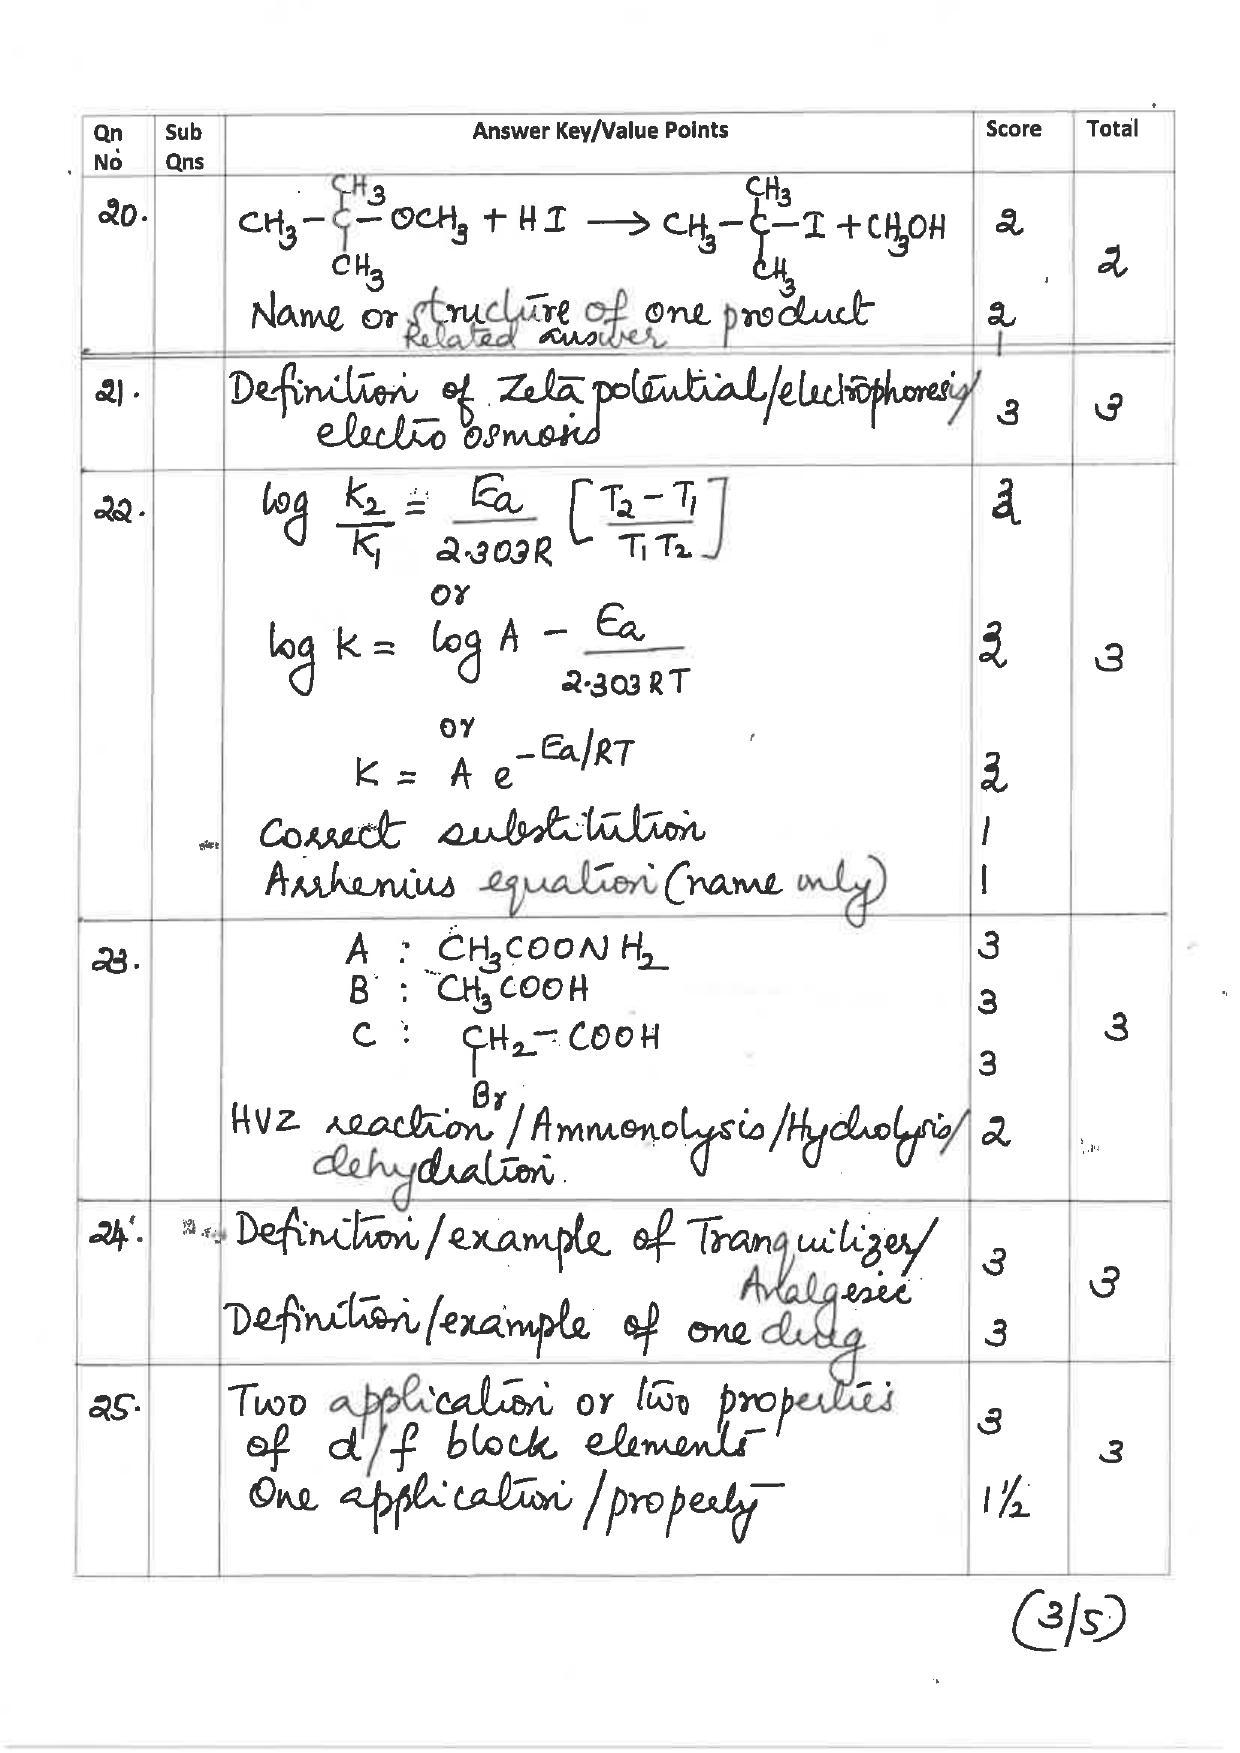 Qn No Sub Qns Answer Key/Value Points Score Total
20. CH3
CH3-C-OCH3 + HI → CH3-C-I + CH3OH 2
CH3 CH3 CH3 2
Name or structure of one product 2
Related answer 1
21. Definition of Zeta potential/electrophoresis/
electro osmosis 3 3
22. log K2/K1 = Ea/2.303R [T2-T1/T1T2]
or
log K = log A - Ea/2.303RT 3
or
K = A e-Ea/RT
Correct substitution 1
Arrhenius equation (name only) 1
23. A : CH3COONH2 3
B : CH3COOH 3
C : CH2-COOH 3
Br 3
HVZ reaction/Ammonolysis/Hydrolysis/ 2
dehydration.
24. Definition/example of Tranquilizer/
Analgesic 3 3
Definition/example of one drug 3
25. Two application or two properties
of d/f block elements 3 3
One application/property 1 1/2
(3/5)